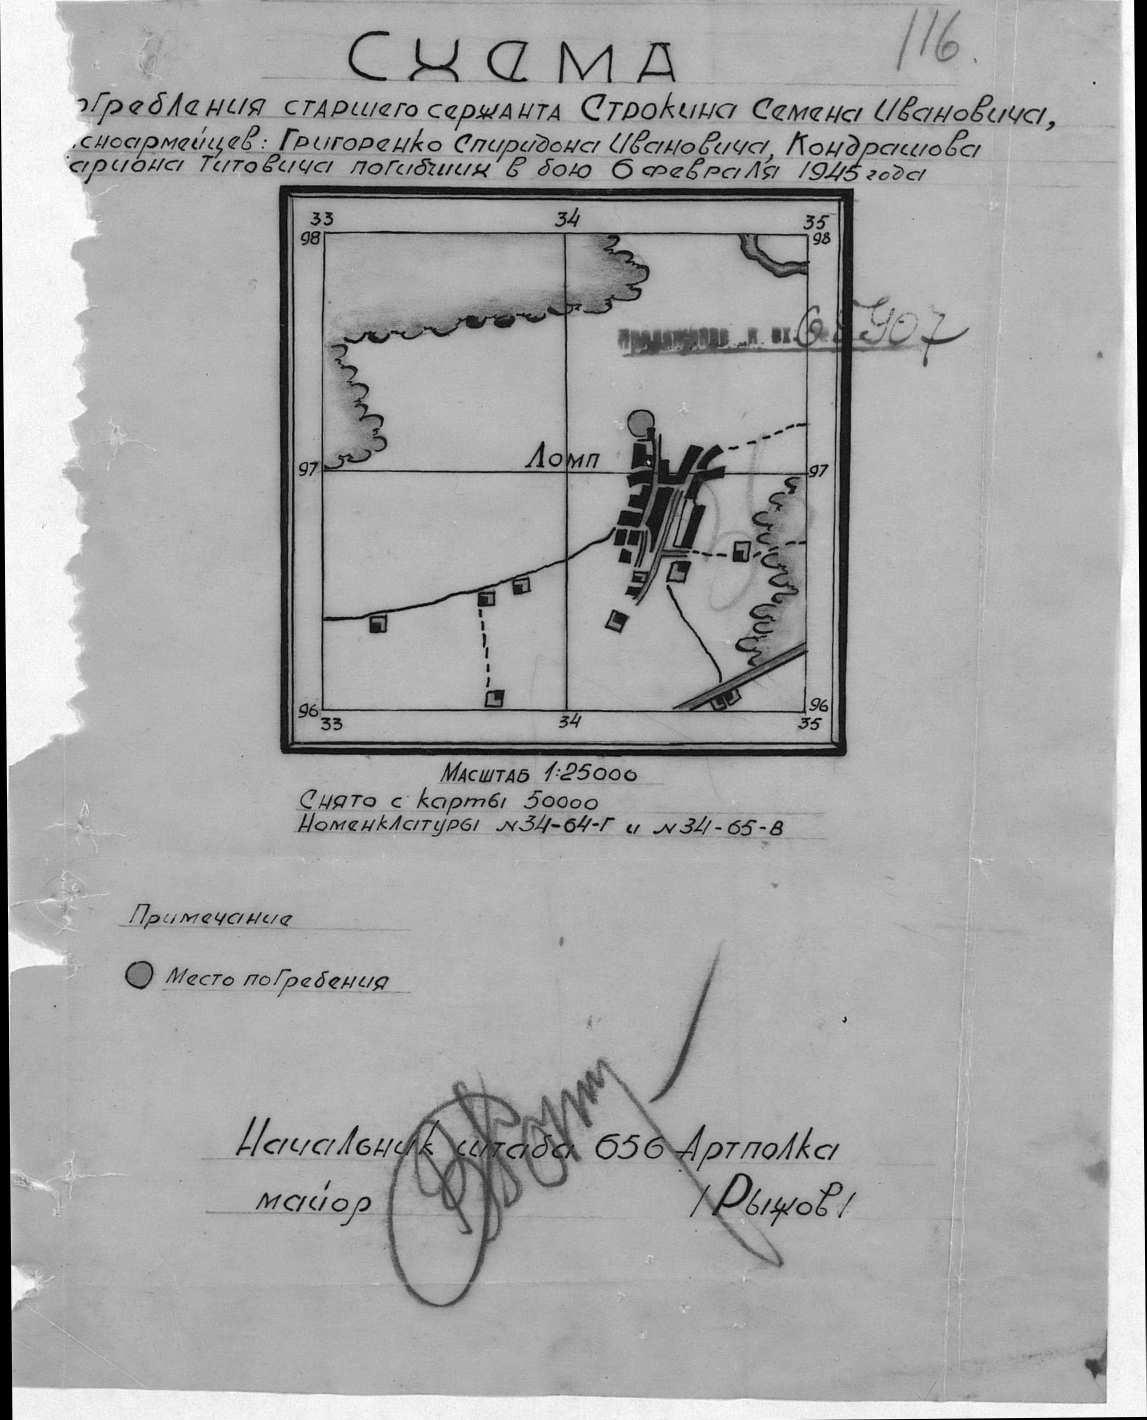 116.
СХЕМА
огребления старшего сержанта Строкина Семена Ивановича,
сноармейцев: Григоренко Спиридона Ивановича, Кондрашова
ариона Титовича погибших в бою 6 февраля 1945 года
33 34 35
98 98
907
Ломп
97 97
96 96
33 34 35
Масштаб 1:25000
Снято с карты 50000
Номенклатуры N34-64-Г и N34-65-В
Примечание
Место погребения
Начальник штаба 656 Артполка
майор /Рыжов/